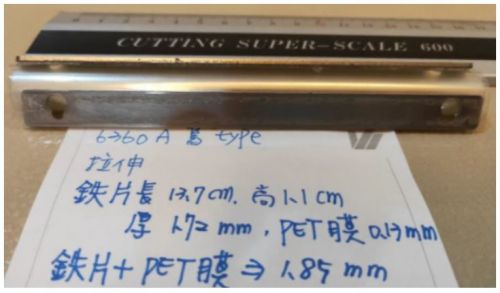 CUTTING SUPER-SCALE 600
6360 A 舊 type
拉伸
鉄片長 13.7 cm. 高 1.1 cm
厚 1.72 mm , PET膜 0.13 mm
鉄片 + PET膜 ⇒ 1.85 mm